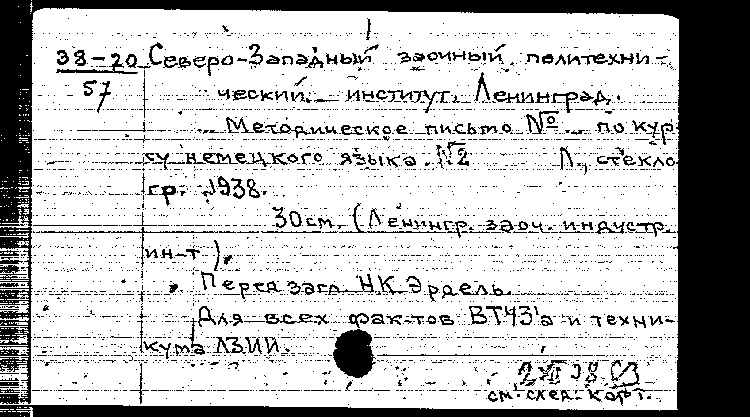 38-20 Северо-Западный заочный политехни-
57 ческий институт. Ленинград.
... Методическое письмо № ... по кур-
су немецкого языка. №2 Л., стекло-
гр. 1938.
30см. (Ленингр. заоч. индустр.
ин-т).
Перед загл. НК Эрдель.
Для всех фак-тов ВТУЗ'а и техни-
кума ЛЗИИ.
см. след. карт.